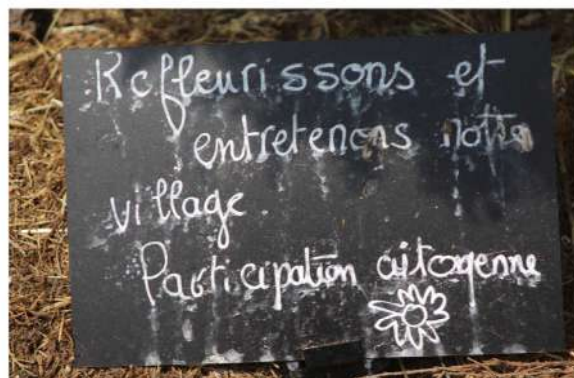 Refleurissons et
entretenons notre
village.
Participation citoyenne